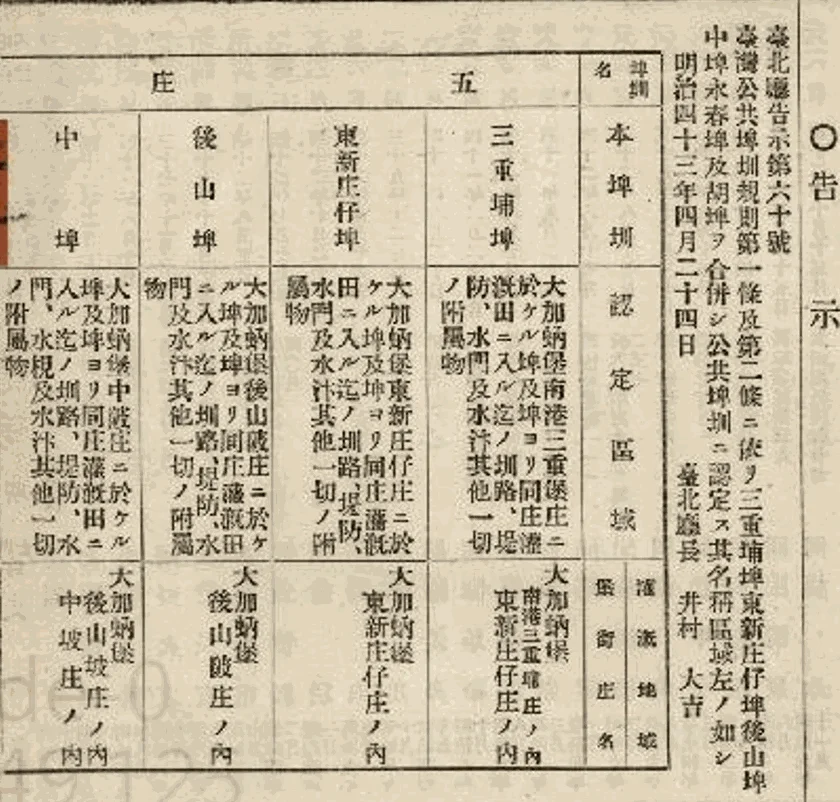 〇告示
臺北廳告示第六十號
臺灣公共埤圳規則第一條及第二條ニ依リ三重埔埤東新庄仔埤後山埤
中埤永春埤及胡埤ヲ合併シ公共埤圳ニ認定ス其名稱區域左ノ如シ
明治四十三年四月二十四日
臺北廳長 井村 大吉
埤圳
名
本埤圳
認定區域
灌漑地域
堡街庄名
五
庄
三重埔埤
大加蚋堡南港三重堡庄ニ
於ケル埤及埤ヨリ同庄灌
漑田ニ入ル迄ノ圳路、堤
防、水門及水汴其他一切
ノ附屬物
大加蚋堡
南港三重埔庄ノ內
東新庄仔庄ノ內
東新庄仔埤
大加蚋堡東新庄仔庄ニ於
ケル埤及埤ヨリ同庄灌漑
田ニ入ル迄ノ圳路、堤防、
水門及水汴其他一切ノ附
屬物
大加蚋堡
東新庄仔庄ノ內
後山埤
大加蚋堡後山陂庄ニ於ケ
ル埤及埤ヨリ同庄灌漑田
ニ入ル迄ノ圳路、堤防、水
門及水汴其他一切ノ附屬
物
大加蚋堡
後山陂庄ノ內
中埤
大加蚋堡中陂庄ニ於ケル
埤及埤ヨリ同庄灌漑田ニ
入ル迄ノ圳路、堤防、水
門、水梘及水汴其他一切
ノ附屬物
大加蚋堡
後山坡庄ノ內
中坡庄ノ內